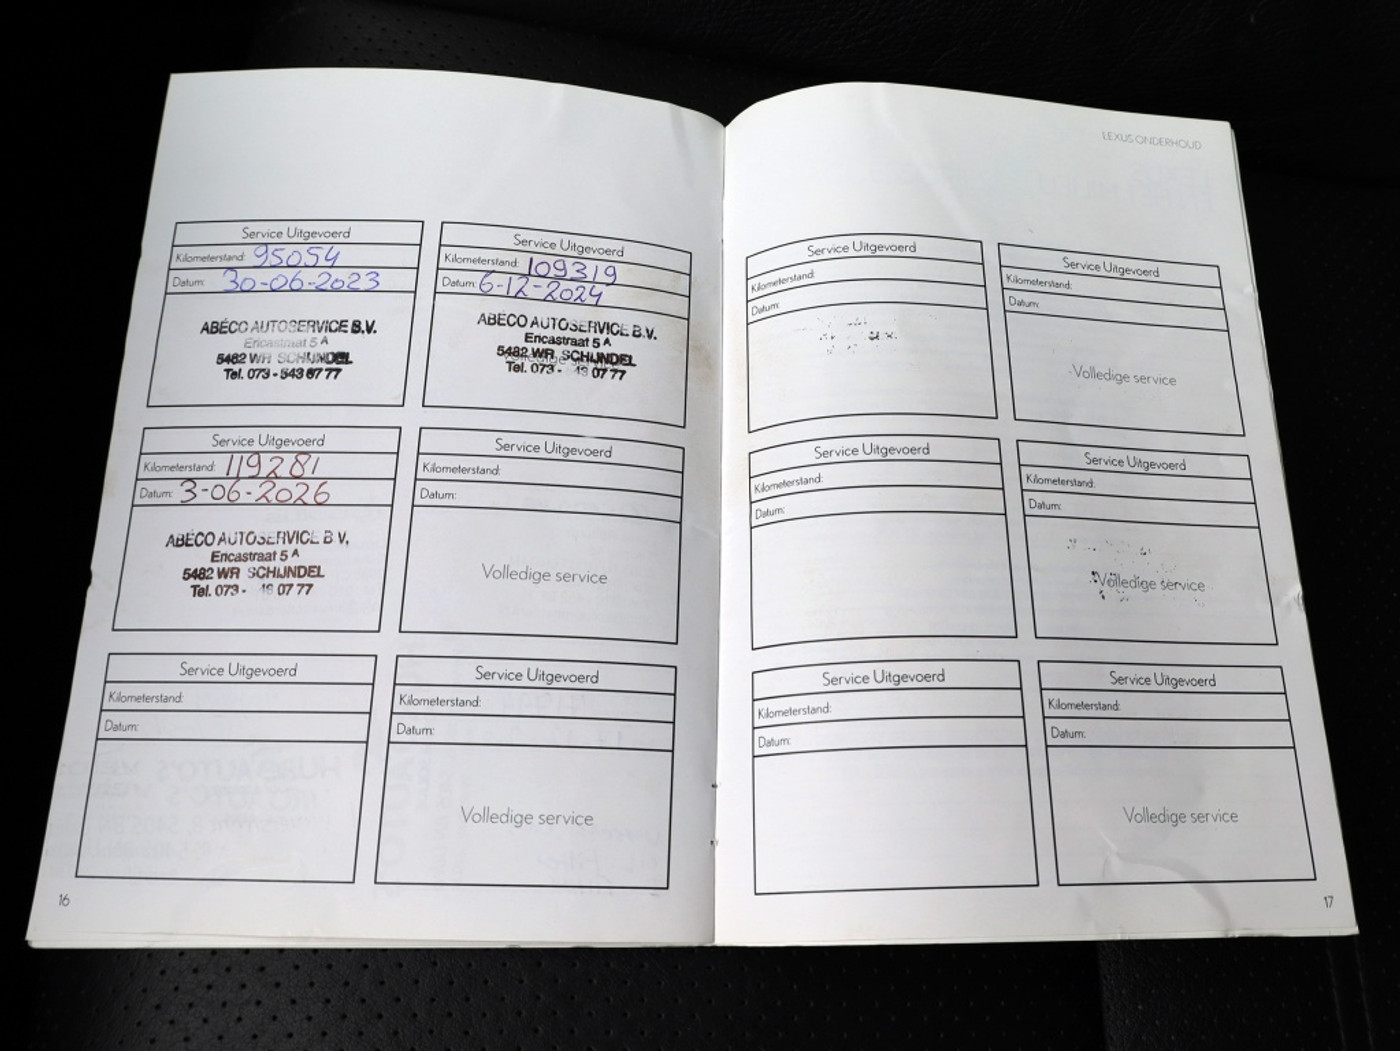 Service Uitgevoerd
Kilometerstand: 95054
Datum: 30-06-2023
ABÉCO AUTOSERVICE B.V.
Ericastraat 5 A
5482 WR SCHIJNDEL
Tel. 073 - 543 67 77
Service Uitgevoerd
Kilometerstand: 109319
Datum: 6-12-2024
ABÉCO AUTOSERVICE B.V.
Ericastraat 5 A
5482 WR SCHIJNDEL
Volledige service
Tel. 073 - 07 77
Service Uitgevoerd
Kilometerstand: 119281
Datum: 3-06-2026
ABÉCO AUTOSERVICE B.V.
Ericastraat 5 A
5482 WR SCHIJNDEL
Tel. 073 - 07 77
Service Uitgevoerd
Kilometerstand:
Datum:
Volledige service
Service Uitgevoerd
Kilometerstand:
Datum:
Service Uitgevoerd
Kilometerstand:
Datum:
Volledige service
16
LEXUS ONDERHOUD
Service Uitgevoerd
Kilometerstand:
Datum:
Service Uitgevoerd
Kilometerstand:
Datum:
Volledige service
Service Uitgevoerd
Kilometerstand:
Datum:
Service Uitgevoerd
Kilometerstand:
Datum:
Volledige service
Service Uitgevoerd
Kilometerstand:
Datum:
Service Uitgevoerd
Kilometerstand:
Datum:
Volledige service
17